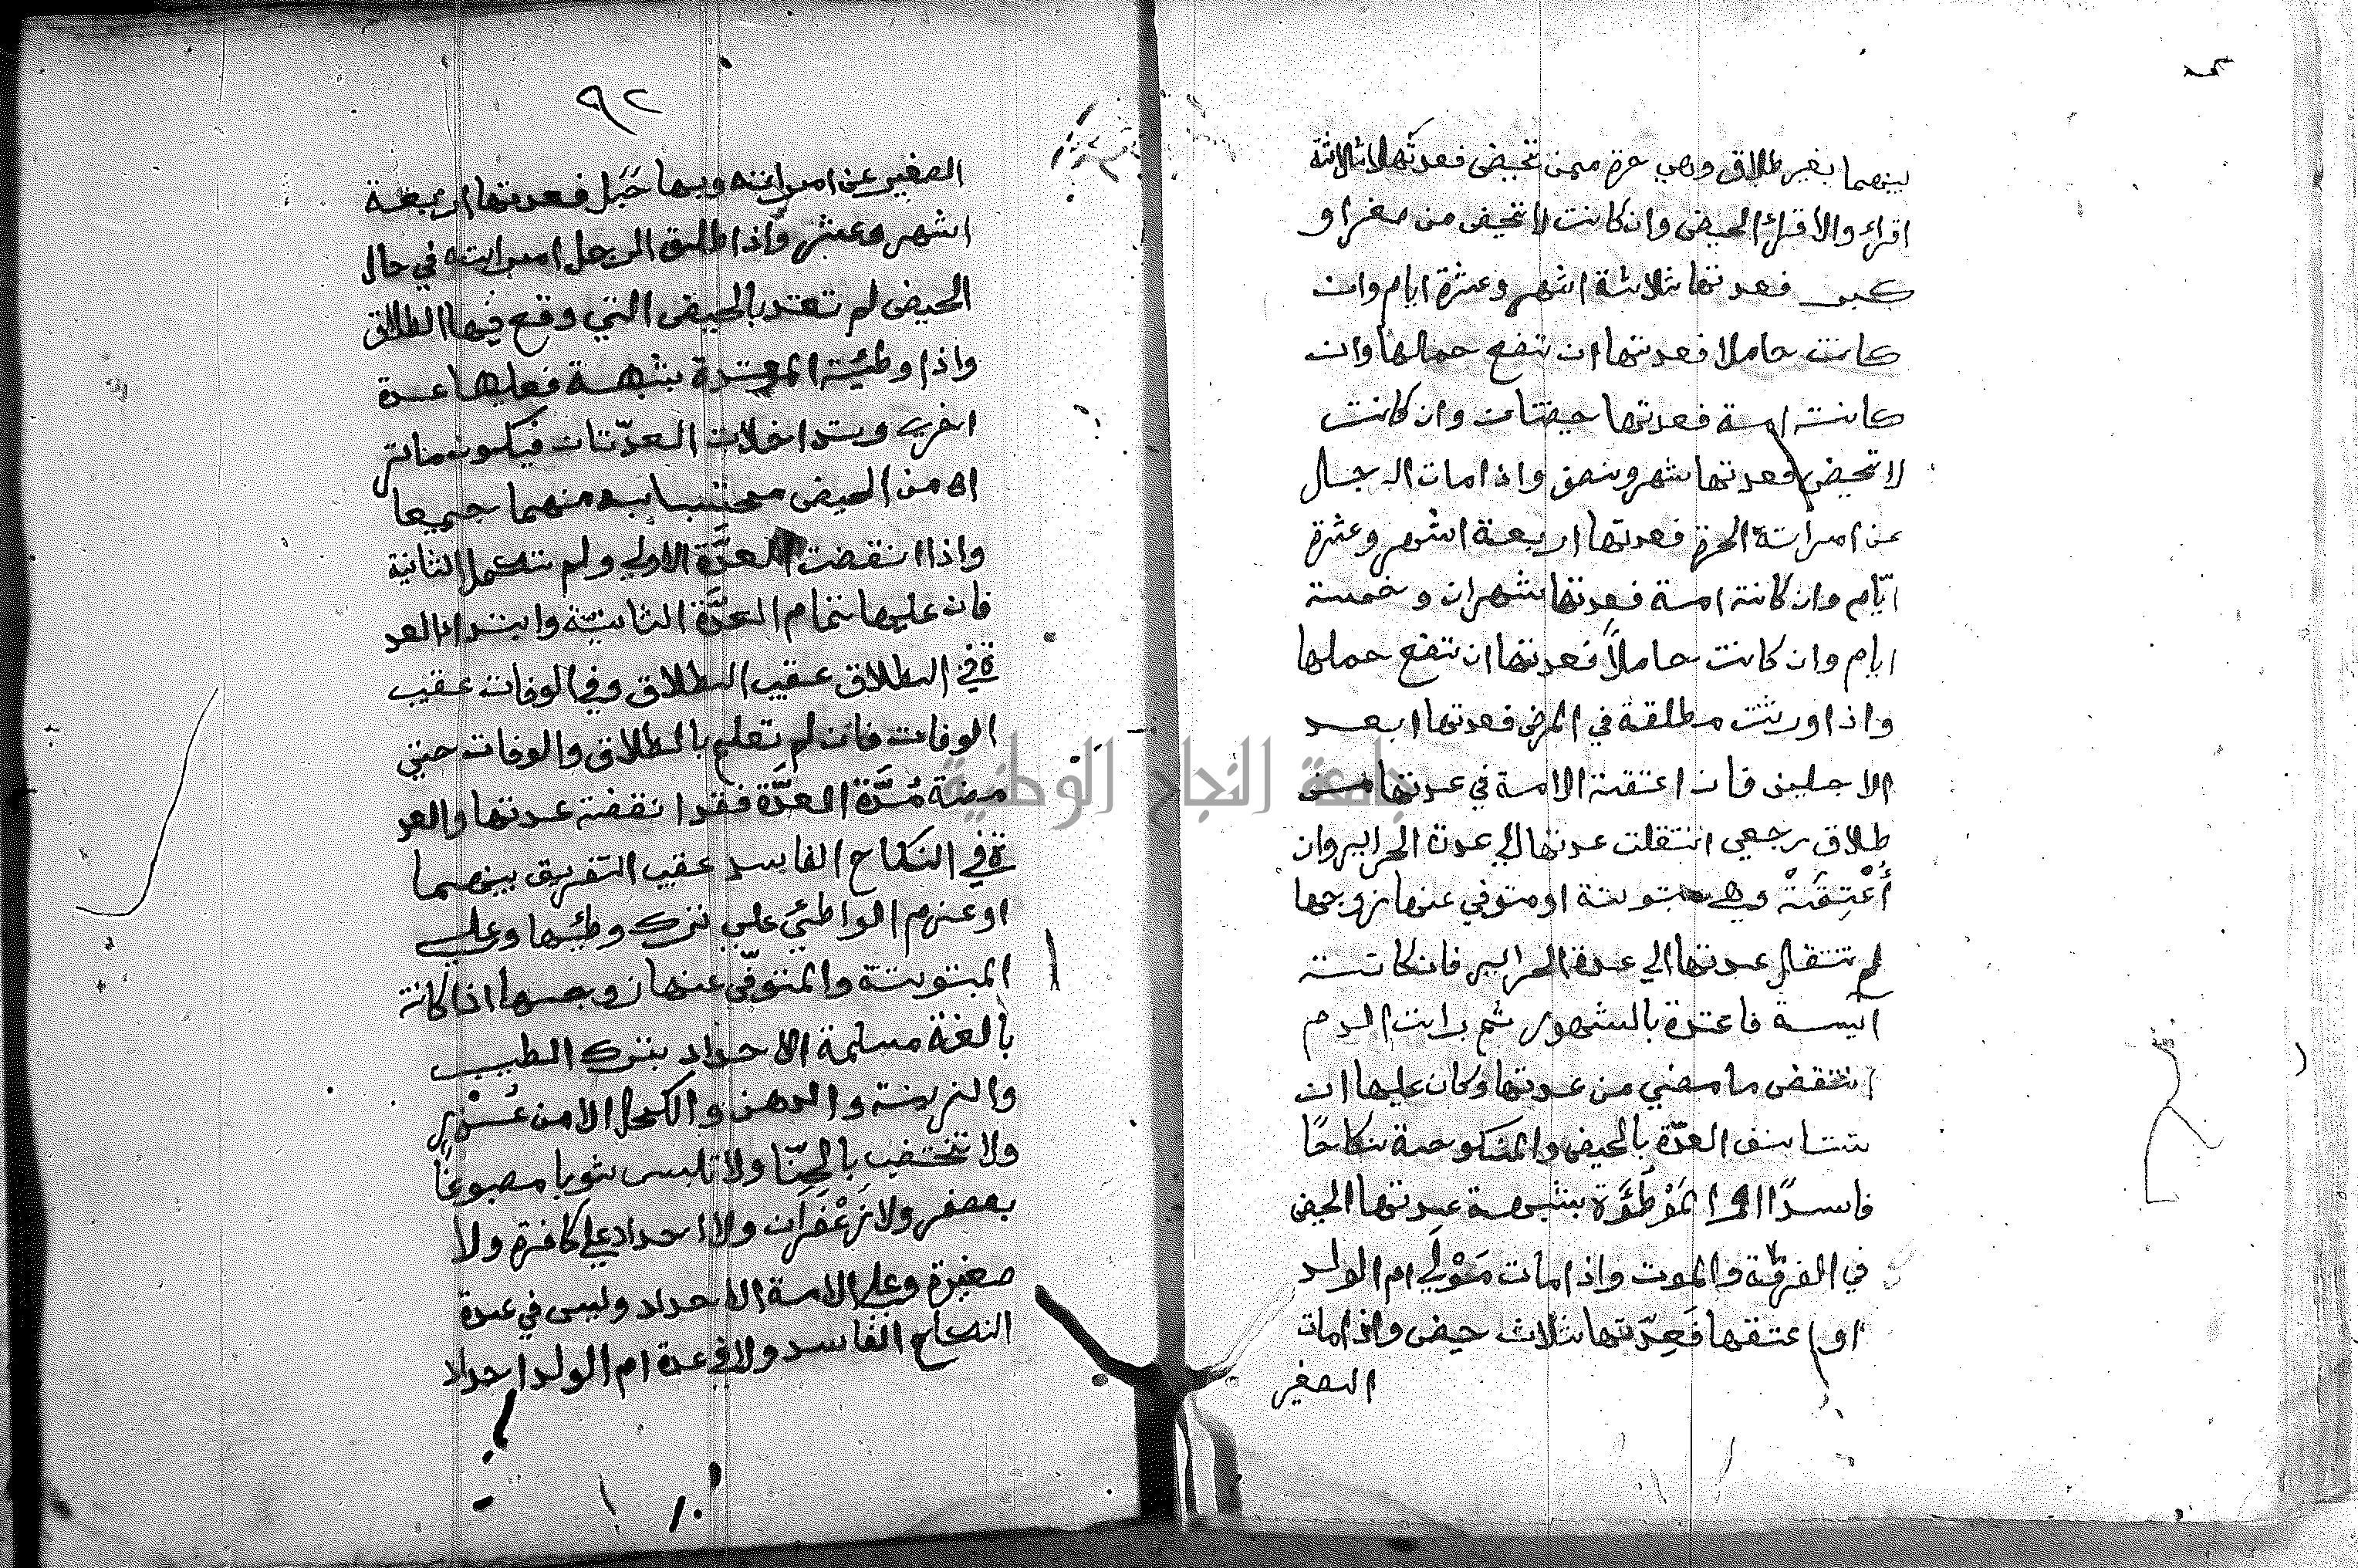 بينهما بغير طلاق وهي حرة ممن تحيض فعدتها ثلاثة
اقراء والاقراء الحيض وان كانت لا تحيض من صغر او
كبر فعدتها ثلاثة اشهر وعشرة ايام وان
كانت حاملا فعدتها ان تضع حملها وان
كانت امة فعدتها حيضتان وان كانت
لا تحيض فعدتها شهر ونصف واذا مات الرجل
عن امراته الحرة فعدتها اربعة اشهر وعشرة
ايّام وان كانة امة فعدتها شهران وخمسة
ايام وان كانت حاملاً فعدتها ان تضع حملها
واذا ورثت مطلقة في المرض فعدتها ابعد
الاجلين فان اعتقة الامة في عدتها من
طلاق رجعي انتقلت عدتها الي عدة الحراير وان
أُعْتِقَتْ وهي مبتوتة او متوفي عنها زوجها
لم تنتقل عدتها الي عدة الحراير فان كانت
آيسة فاعتدة بالشهور ثم رات الدم
انتقض ما مضي من عدتها وكان عليها ان
تستانف العدّة بالحيض والمنكوحة نكاحًا
فاسدًا والمَوْطَؤَة بشبهة عدتها الحيض
في الفرقة والموت واذا مات مَوْلَي ام الولد
او اعتقها فَعِدّتها ثلاث حيض واذا مات
الصغير
٩٢
الصغير عن امراته وبها حَبَل فعدتها اربعة
اشهر وعشر واذا طلق الرجل امراته في حال
الحيض لم تعتد بالحيض التي وقع فيها الطلاق
واذا وطئية المعتدة بشبهة فعليها عدة
اخري وتداخلات العدّتان فيكون ماتر
اه من الحيض محتسبا به منهما جميعا
واذا انقضت العدَّة الاولي ولم تكمل الثانية
فان عليها تمام العدَّة الثانية وابتداء العد
ة في الطلاق عقيب الطلاق وفي الوفات عقيب
الوفات فان لم تعلم بالطلاق والوفات حتي
مضة مُدَّة العدَّة فقد انقضة عدتها والعد
ة في النكاح الفاسد عقيب التفريق بينهما
او عزم الواطئ علي ترك وطئها وعلي
المبتوتة والمتوفّي عنها زوجها اذا كانة
بالغة مسلمة الاحداد بترك الطيب
والزينة والدهن والكحل الا من عُذْرٍ
ولا تختضب بالحِنّا ولا تلبس ثوبا مصبوغًا
بعصفر ولا زَعْفَرَان ولا احداد علي كافرة ولا
صغيرة وعلي الامة الاحداد وليس في عدة
النكاح الفاسد ولا في عدة ام الولد احداد
جامعة النجاح الوطنية